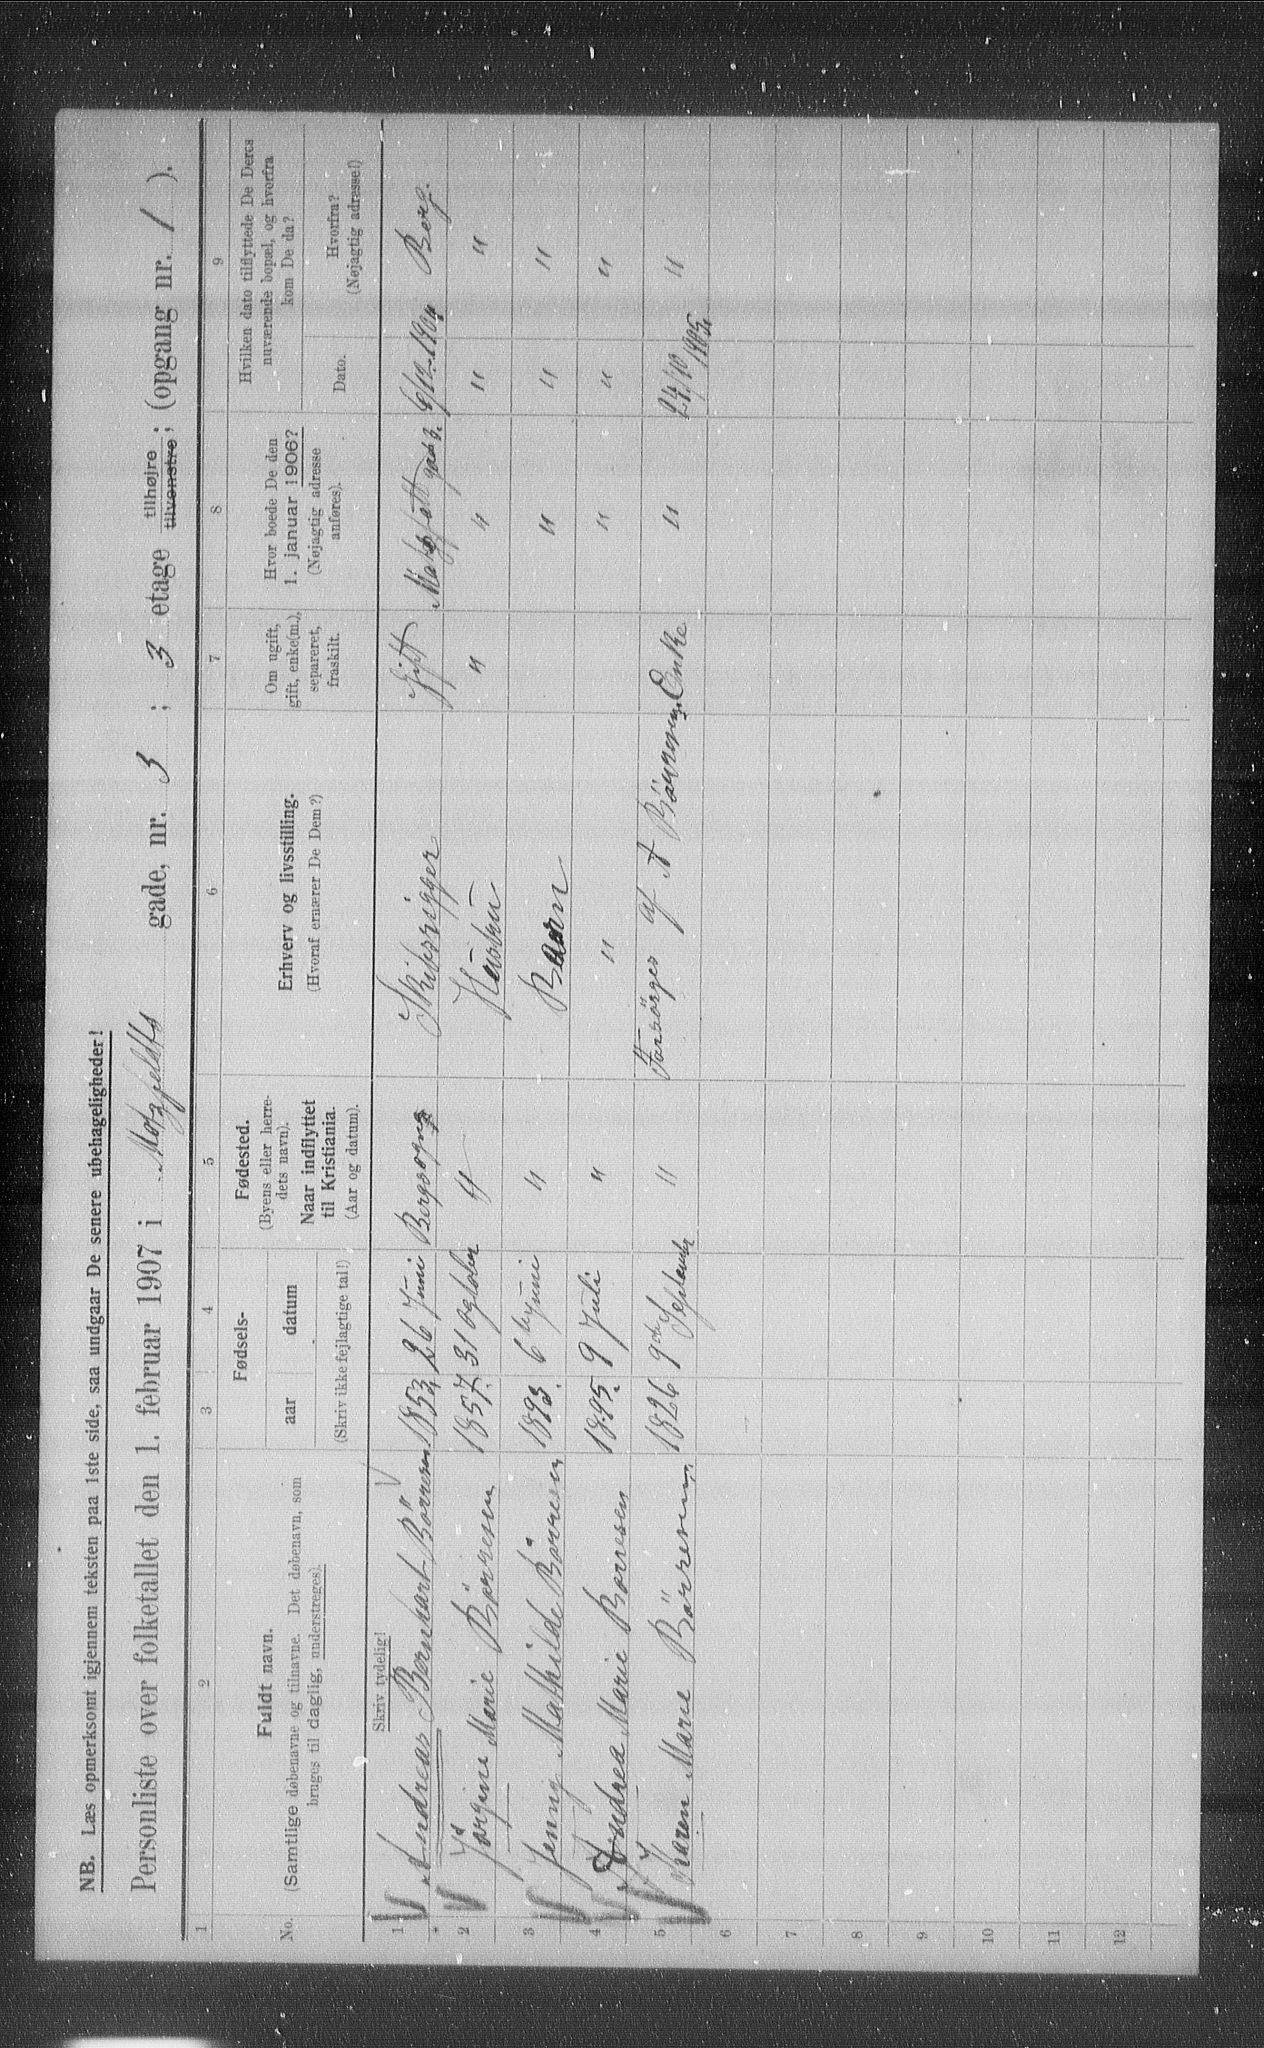 NB. Læs opmerksomt igjennem teksten paa 1ste side, saa undgaar De senere ubehageligheder!
Personliste over folketallet den 1. februar 1907 i Motzfeldts gade, nr. 3 ; 3 etage tilhøjre tilvenstre ; (opgang nr. 1 ).
1 2 3 4 5 6 7 8 9
No.
Fuldt navn.
(Samtlige døbenavne og tilnavne. Det døbenavn, som
bruges til daglig, understreges).
Fødsels-
aar datum
(Skriv ikke fejlagtige tal!)
Fødested.
(Byens eller herre-
dets navn).
Naar indflyttet
til Kristiania.
(Aar og datum).
Erhverv og livsstilling.
(Hvoraf ernærer De Dem?)
Om ugift,
gift, enke(m.),
separeret,
fraskilt.
Hvor boede De den
1. januar 1906?
(Nøjagtig adresse
anføres).
Hvilken dato tilflyttede De Deres
nuværende bopæl, og hvorfra
kom De da?
Dato.
Hvorfra?
(Nøjagtig adresse!)
Skriv tydelig!
1 Andreas Bernhart Börresen 1853 26 Juni Bergsogn Skibsrigger Gift 1904 Berg.
2 Jörgine Marie Börresen 1857. 31 October " Hustru " " " "
3 Jenny Mathilde Börresen 1893. 6 Juni " Barn " " "
4 Andrea Marie Borresen 1895. 9 Juli " " " " "
5 Karen Marie Börresen. 1826 9de September " Forsörges af A Börresen. Enke " 24/10 1905. "
6
7
8
9
10
11
12